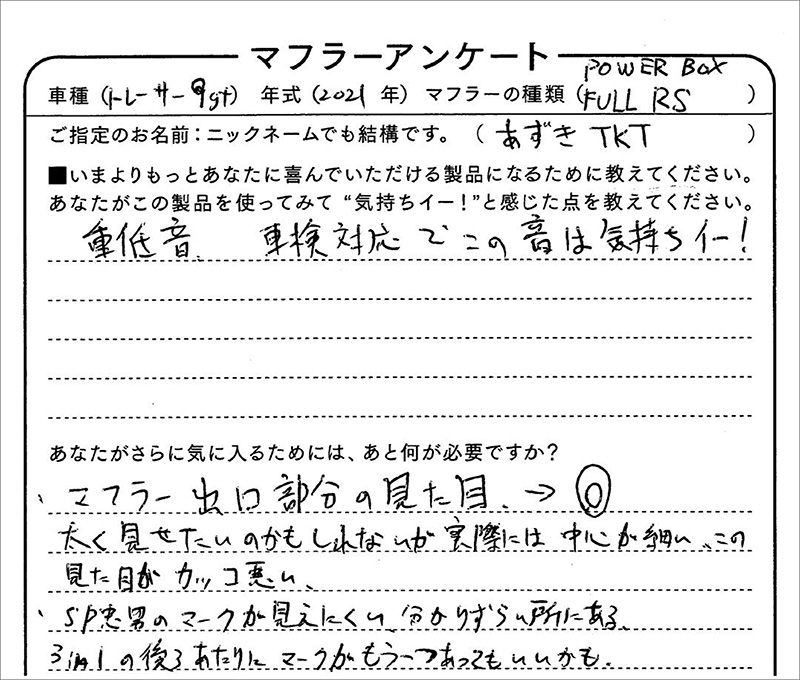 マフラーアンケート
車種（トレーサー9gt） 年式（2021 年） マフラーの種類（POWER BOX FULL RS）
ご指定のお名前：ニックネームでも結構です。（あずき TKT）
■いまよりもっとあなたに喜んでいただける製品になるために教えてください。
あなたがこの製品を使ってみて“気持ちイー！”と感じた点を教えてください。
重低音、 車検対応でこの音は気持ちイー！
あなたがさらに気に入るためには、あと何が必要ですか？
、マフラー出口部分の見た目、→◎
太く見せたいのかもしれないが実際には中心が細い、この
見た目がカッコ悪い、
、SP忠男のマークが見えにくい、分かりずらい所にある、
3in1の後ろあたりにマークがもう一つあってもいいかも、